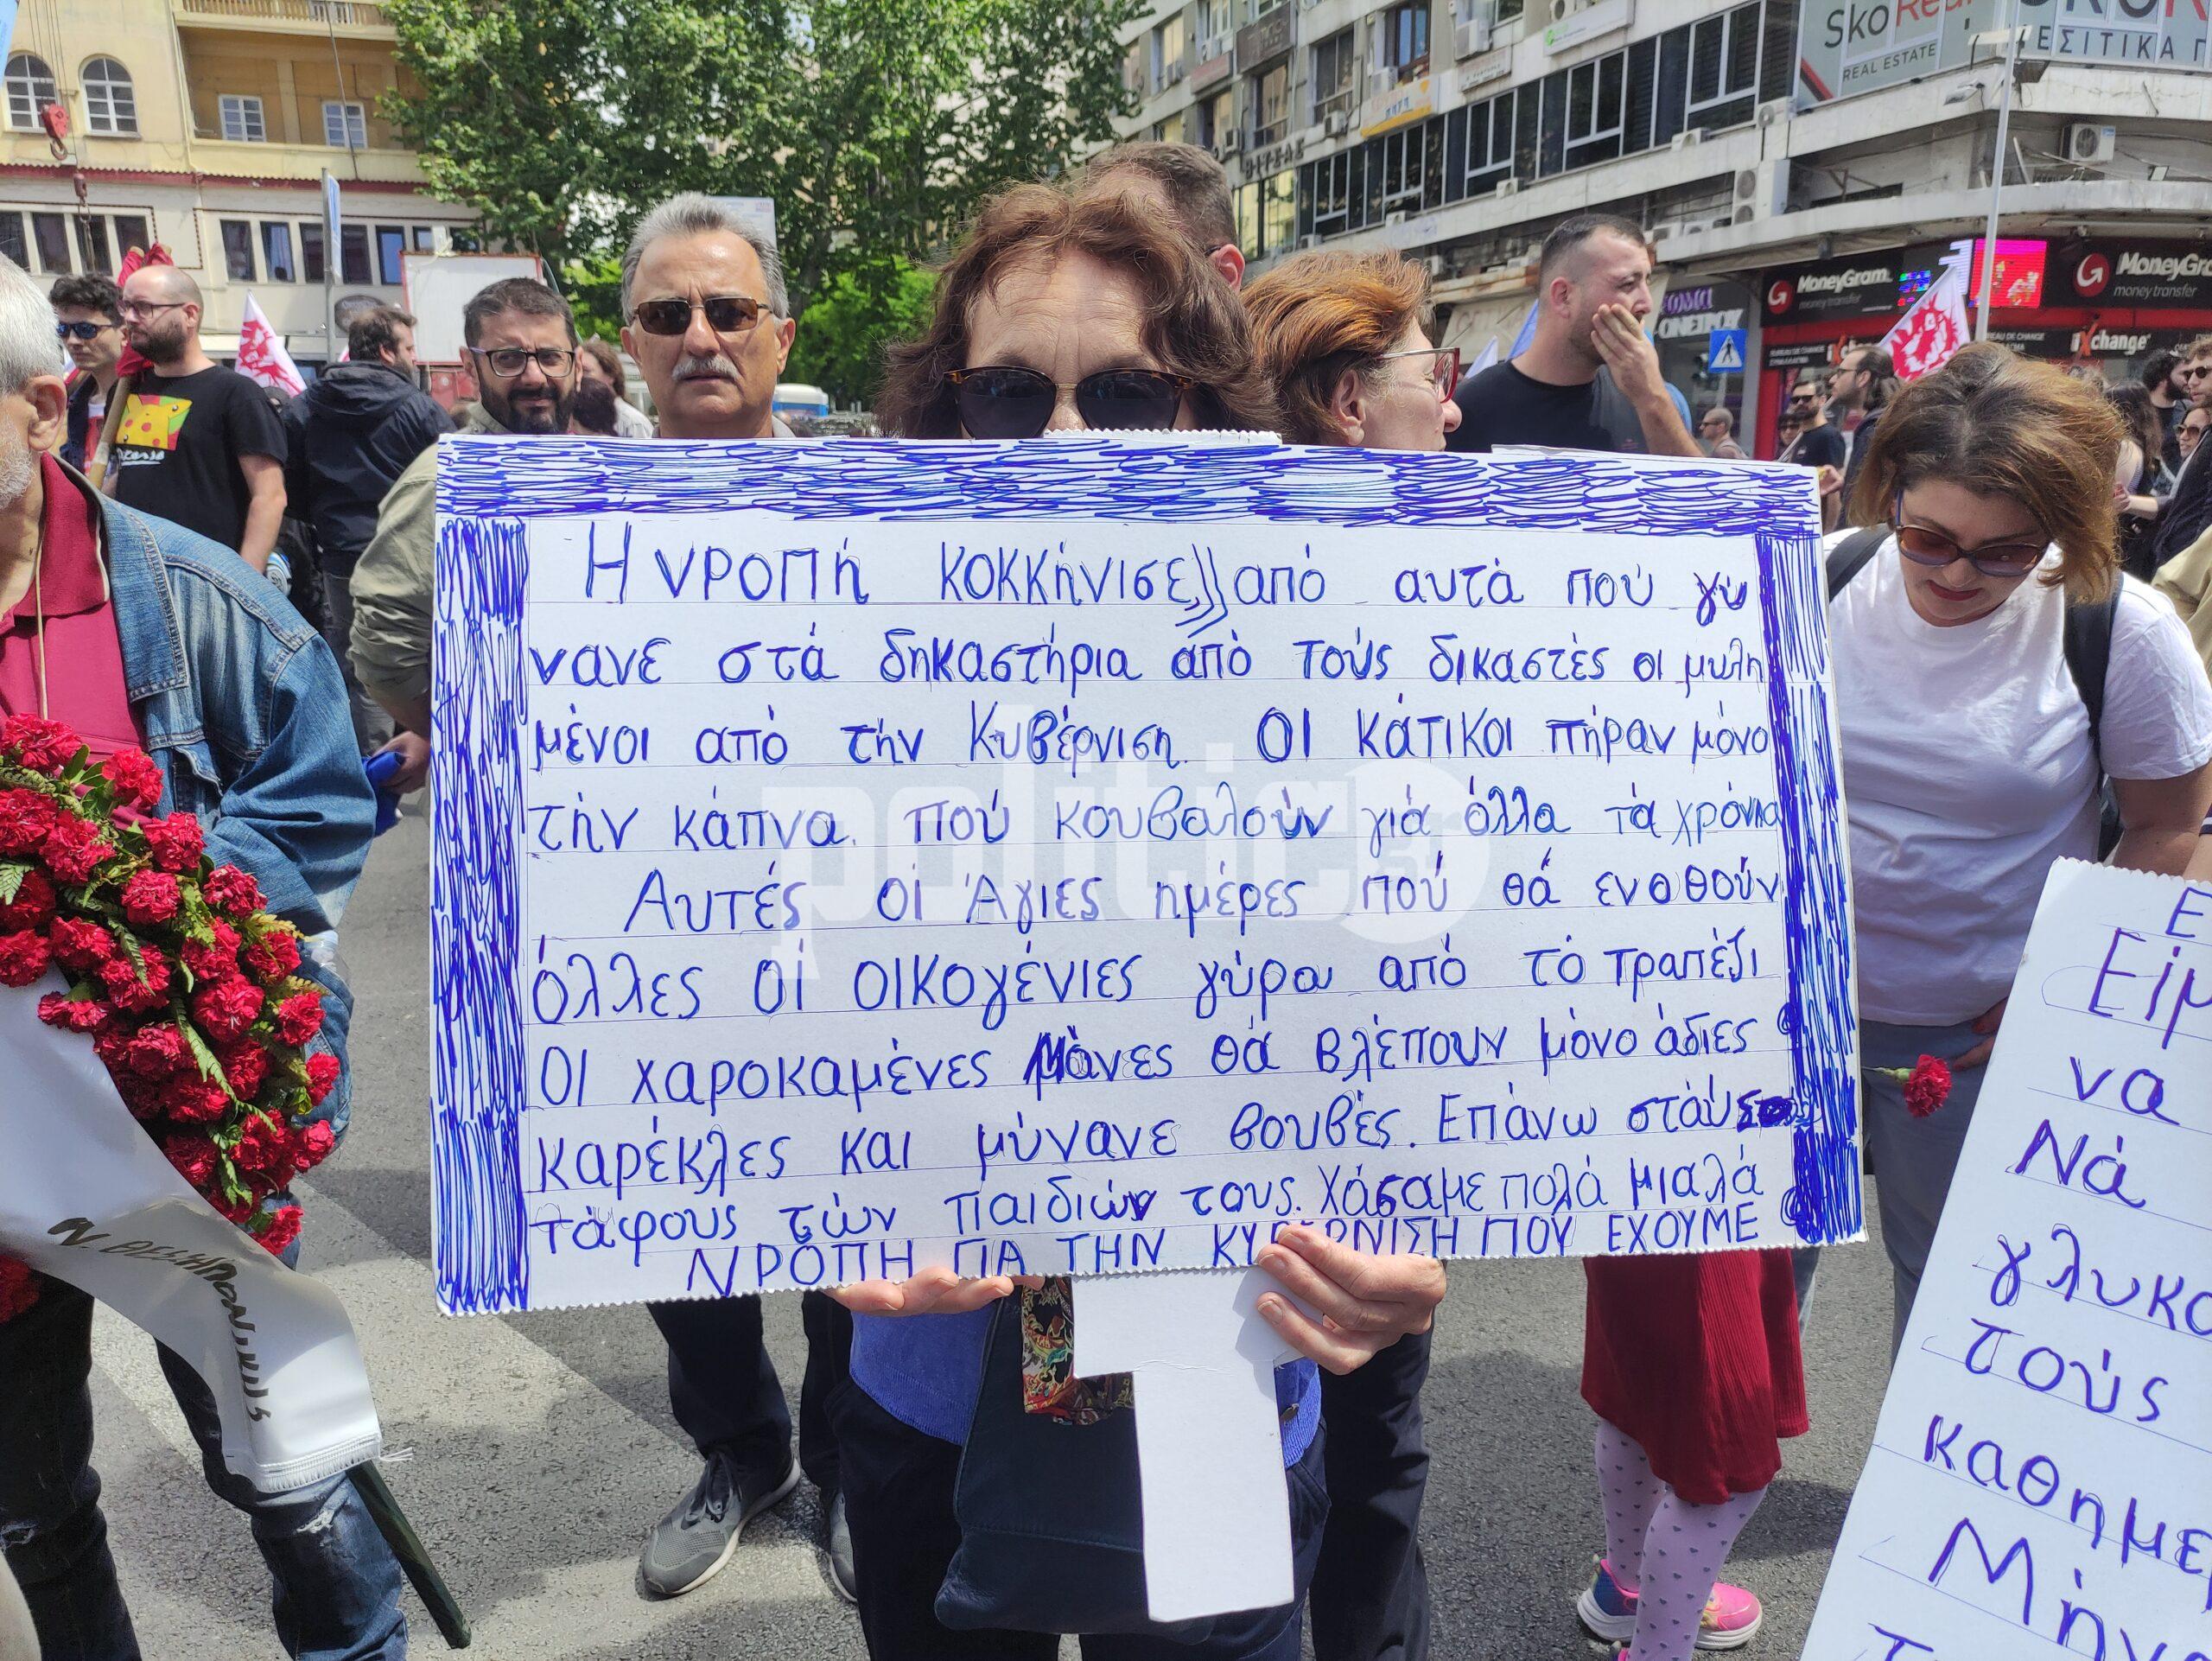 Sko Real
REAL ESTATE
ΕΣΙΤΙΚΑ Γ
MoneyGram
money transfer
MoneyGra
money transfer
ΟΝΕΙΡΟΥ
BUREAU DE CHANGE
iXchange
Η νΡΟΠή ΚΟΚΚήΝΙσΕ από αυτά πού γύ
νανε στά δηκαστήρια από τούς δικαστές οι μυλη
μένοι από τήν Κυβέρνιση. ΟΙ ΚάΤΙΚΟΙ πήραν μόνο
τήν κάπνα. πού κουβαλούν γιά όλλα τά χρόνια
Αυτές οί Άγιες ημέρες πού θά ενοθούν
όλλες οί οικογένιες γύρω από τό τραπέζι
ΟΙ χαροκαμένες Μάνες θά βλέπουν μόνο άδιες
καρέκλες και μύνανε βουβές. Επάνω στούς
τάφους τών παιδιών τους. Χάσαμε πολά μιαλά
ΝΡΟΠΗ ΓΙΑ ΤΗΝ ΚΥΒΕΡΝΙΣΗ ΠΟΥ ΕΧΟΥΜΕ
politic
Ν. ΘΕΣΣΑΛΟΝΙΚΗΣ
Ε
Είμ
να
Νά
γλυκο
τούς
καθημε
Μήν